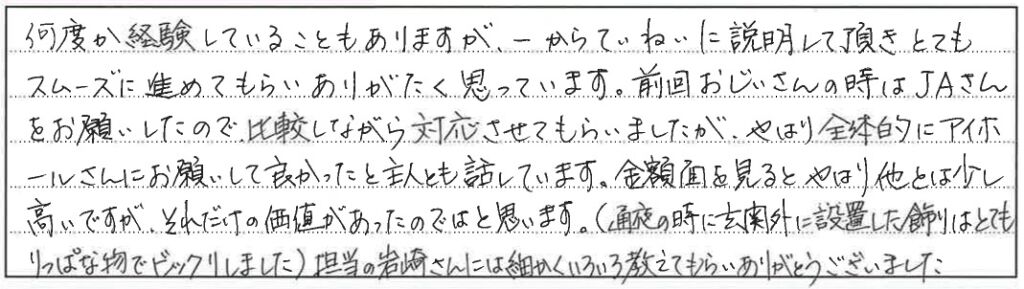 何度か経験していることもありますが、一からていねいに説明して頂きとても
スムーズに進めてもらいありがたく思っています。前回おじいさんの時はJAさん
をお願いしたので、比較しながら対応させてもらいましたが、やはり全体的にアイホ
ールさんにお願いして良かったと主人とも話しています。金額面を見るとやはり他とは少し
高いですが、それだけの価値があったのではと思います。(通夜の時に玄関外に設置した飾りはとても
りっぱな物でビックリしました)担当の岩崎さんには細かくいろいろ教えてもらいありがとうございました